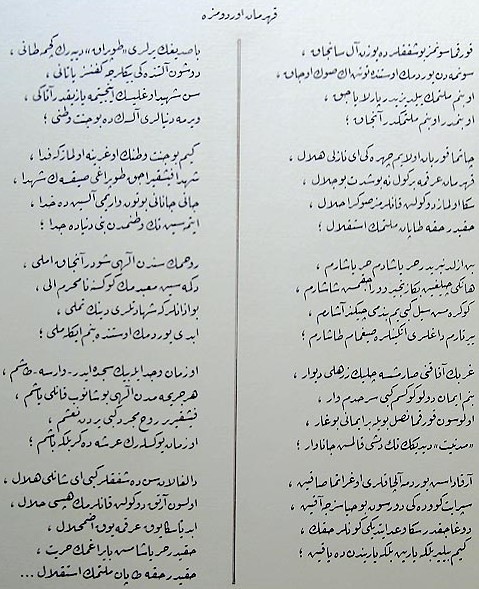 قهرمان اوردومزه
قورقما سونمز بو شفقلرده يوزن آل سانجاق ،
سونمه‌دن يوردمك اوستنده توتن اك صوك اوجاق ،
او بنم ملتمك ييلديزيدر پارلاياجق ،
او بنمدر او بنم ملتمكدر آنجاق ؛
چاتما قوربان اولايم چهره‌كى اى نازلى هلال ،
قهرمان عرقمه بر گول نه بو شدت بو جلال ،
سكا اولماز دوكولن قانلرمز صوكرا حلال ،
حقيدر حقه طاپان ملتمك استقلال ؛
بن ازلدنبريدر حر ياشادم حر ياشارم ،
هانگى چيلغين بكا زنجير اوره‌جقمش شاشارم ،
كوكره‌مش سيل كبى‌يم بندمى چيكنر آشارم ،
ييرتارم داغلرى انكينلره صيغمام طاشارم ؛
غربك آفاقنى صارمشسه چليك زرهلى ديوار ،
بنم ايمان دولو كوكسم كبى سرحدم وار ،
اولوسون قورقما نصل بويله بر ايمانى بوغار ،
«مدنيت» ديديكك تك ديشى قالمش جاناوار ؛
آرقاداش يوردمه آلچاقلرى اوغراتما صاقين ،
سپر ايت كووده‌كى دورسون بو حياسزجه آقين ،
دوغاجقدر سكا وعد ايتديكى كونلر حقك ،
كيم بيلير بلكه يارين بلكه ياريندن ده ياقين ؛
باصديغك يرلرى «طوپراق» ديه‌رك كچمه طانى ،
دوشون آلتنده‌كى بيكلرجه كفنسز ياتانى ،
سن شهيد اوغليسك اينجيتمه يازيقدر آتاكى ،
ويرمه دنيالرى آلسك ده بو جنت وطنى ؛
كيم بو جنت وطنك اوغرينه اولماز كه فدا ،
شهدا فيشقيراجق طوپراغى صيقسه‌ك شهدا ،
جانى جانانى بوتون وارمى آلسين ده خدا ،
ايتمه‌سين تك وطنمدن بنى دنياده جدا ؛
روحمك سندن الهى شودر آنجاق املى ،
دكمه‌سين معبدمك كوكسنه نامحرم الى ،
بو اذانلر كه شهادتلرى دينك تملى ،
ابدى يوردمك اوستنده بنم ايكله‌ملى ؛
او زمان وجد ايله بيك سجده ايدر ـ وارسه ـ طاشم ،
هر جريحه‌مدن الهى بوشانوب قانلى ياشم ،
فيشقيرر روح مجرد كبى يردن نعشم ،
او زمان يوكسله‌رك عرشه دگر بلكه باشم ؛
دالغالان سن ده شفقلر كبى اى شانلى هلال ،
اولسون آرتق دوكولن قانلرمك هپسى حلال ،
ابديا سكا يوق عرقمه يوق اضمحلال ،
حقيدر حر ياشامش بايراغمك حريت ،
حقيدر حقه طاپان ملتمك استقلال ...